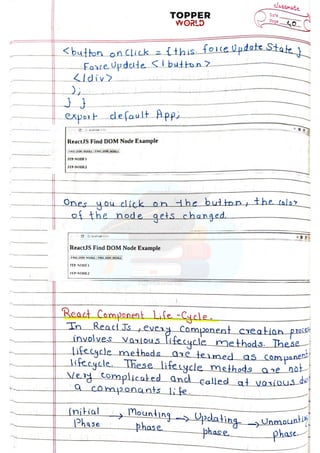 classmate
TOPPER
WORLD
40
<button onClick = {this forceUpdateState}
ForceUpdate <\button>
<\div>
);
} }
export default App;
ReactJS Find DOM Node Example
FIND_DOM_NODE1 FIND_DOM_NODE2
JTP-NODE1
JTP-NODE2
Ones you click on the button, the color
of the node gets changed.
ReactJS Find DOM Node Example
FIND_DOM_NODE1 FIND_DOM_NODE2
JTP-NODE1
JTP-NODE2
React Component Life-Cycle.
In ReactJs, every component creation process
involves various lifecycle methods. These
lifecycle methods are termed as component
lifecycle. These lifecycle methods are not
very complicated and called at various
a componants life.
Initial → Mounting → Updating → Unmounting
Phase phase phase. phase.